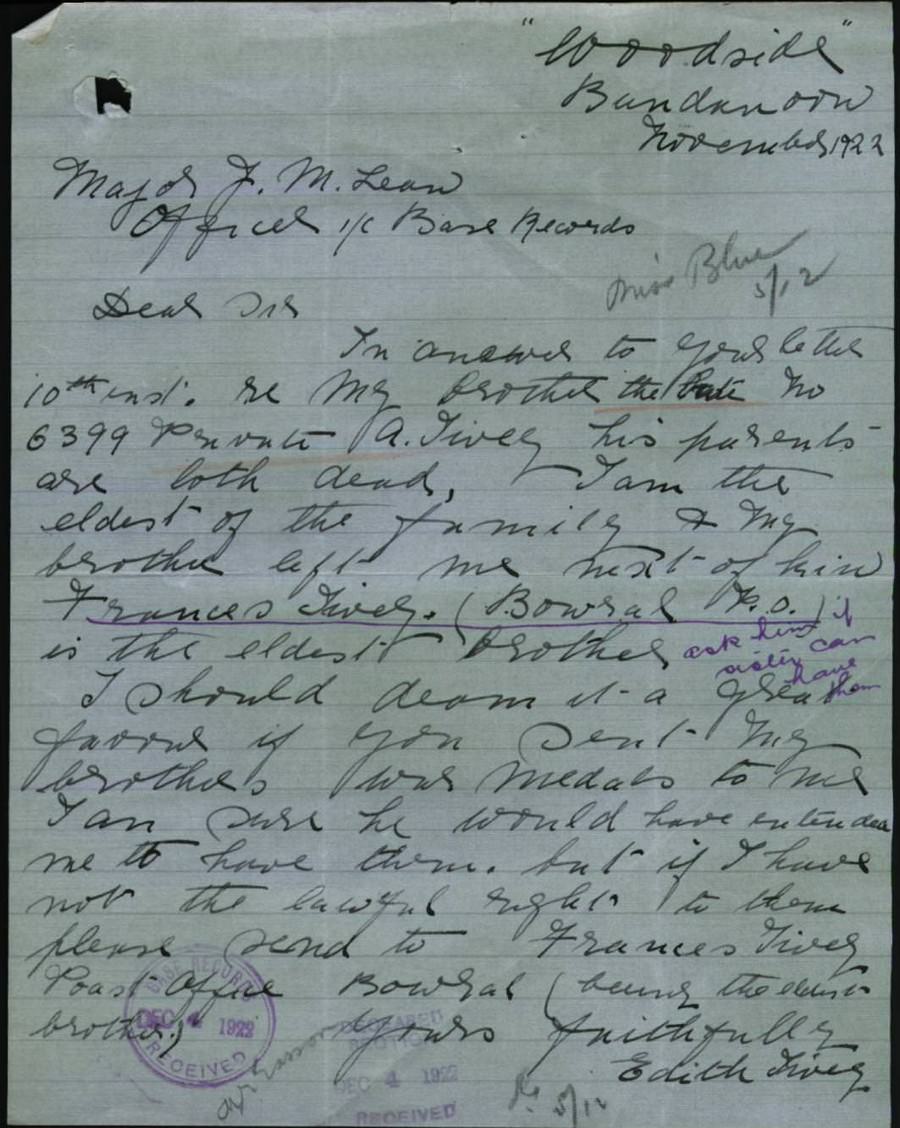 "Woodside"
Bundanoon
November 1922
Major J. M. Lean
Officer i/c Base Records
Miss Blue
5/12
Dear Sir
In answer to your letter
10th inst. re My brother the late No
6399 Private A. Tivey his parents
are both dead, I am the
eldest of the family & My
brother left me next of kin
Frances Tivey. (Bowral P.O.)
is the eldest brother
ask him if
sister can
have
them
I should deam it a great
favour if you sent My
brothers war medals to me
I am sure he would have entended
me to have them. but if I have
not the lawful right to them
please send to Frances Tivey
Post Office Bowral (being the eldest
brother) Yours faithfully
Edith Tivey
BASE RECORDS
DEC 4 1922
RECEIVED
DEC 4 1922
RECEIVED
5/12